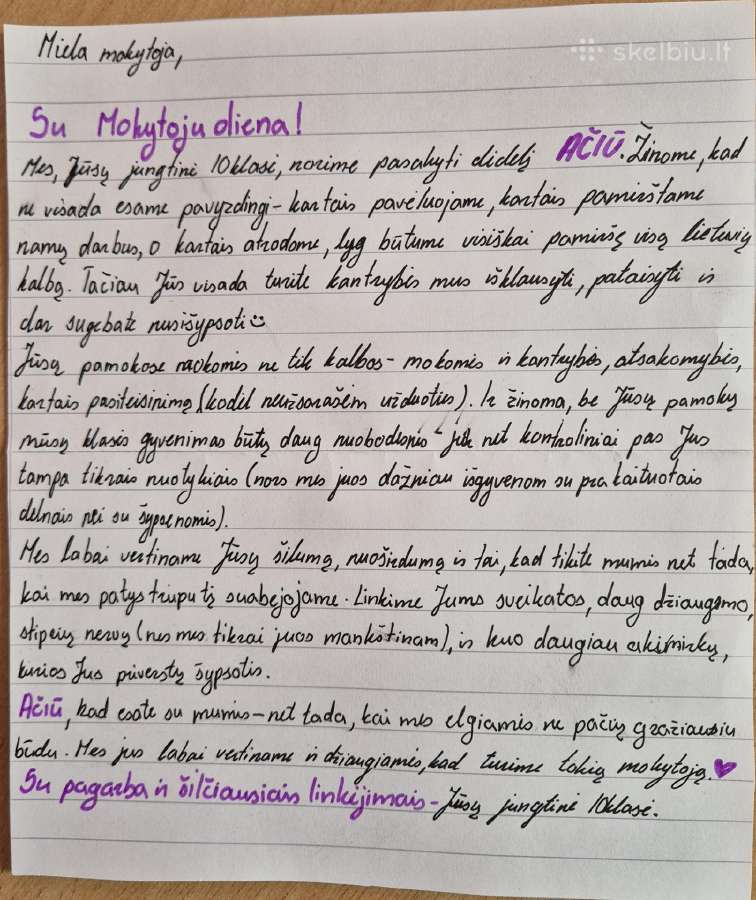 skelbiu.lt
Miela mokytoja,
Su Mokytojų diena!
Mes, Jūsų jungtinė 10klasė, norime pasakyti didelį AČIŪ. Žinome, kad
ne visada esame pavyzdingi - kartais pavėluojame, kartais pamirštame
namų darbus, o kartais atrodome, lyg būtume visiškai pamiršę visą lietuvių
kalbą. Tačiau Jūs visada turite kantrybės mus išklausyti, pataisyti ir
dar sugebate nusišypsoti☺
Jūsų pamokose mokomės ne tik kalbos - mokomės ir kantrybės, atsakomybės,
kartais pasiteisinimų (kodėl neužsirašėm užduoties). Ir žinoma, be Jūsų pamokų
mūsų klasės gyvenimas būtų daug nuobodesnis - juk net kontroliniai pas Jus
tampa tikrais nuotykiais (nors mes juos dažniau išgyvenom su prakaituotais
delnais nei su šypsenomis).
Mes labai vertiname Jūsų šilumą, nuoširdumą ir tai, kad tikite mumis net tada,
kai mes patys truputį suabejojame. Linkime Jums sveikatos, daug džiaugsmo,
stiprių nervų (nes mes tikrai juos mankštinam), ir kuo daugiau akimirkų,
kurios Jus priverstų šypsotis.
AČIŪ, kad esate su mumis - net tada, kai mes elgiamės ne pačių gražiausiu
būdu. Mes jus labai vertiname ir džiaugiamės, kad turime tokią mokytoją.♥
Su pagarba ir šilčiausiais linkėjimais - Jūsų jungtinė 10klasė.